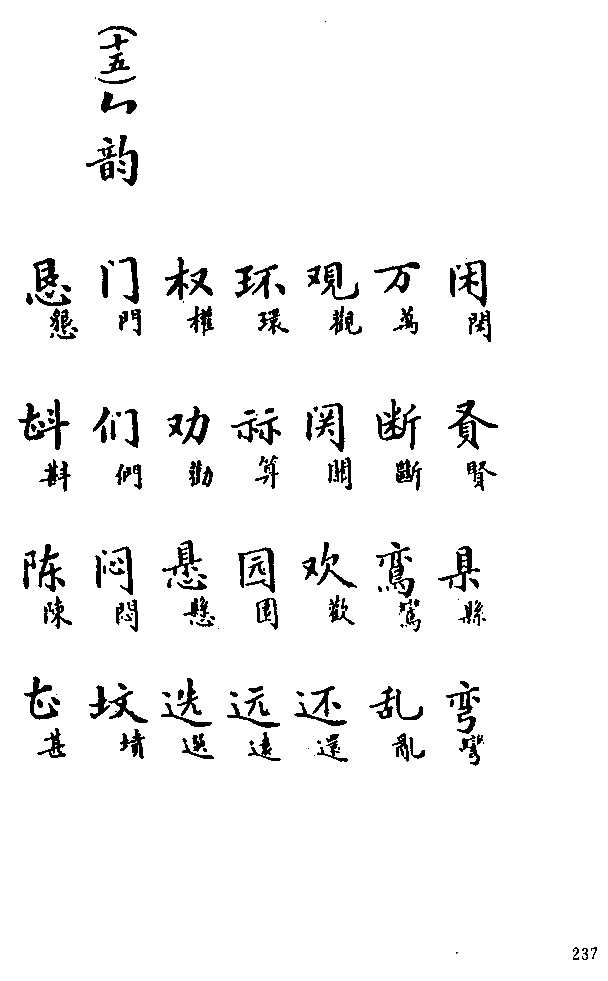 （十五）ㄢ韵
闲 閑
贤 賢
県 縣
弯 彎
万 萬
断 斷
鸾 鸞
乱 亂
观 觀
關
欢 歡
还 還
环 環
祘 算
园 園
远 遠
权 權
劝 勸
悬 懸
选 選
门 門
们 們
闷 悶
坟 墳
恳 懇
斟
陈 陳
甚
237